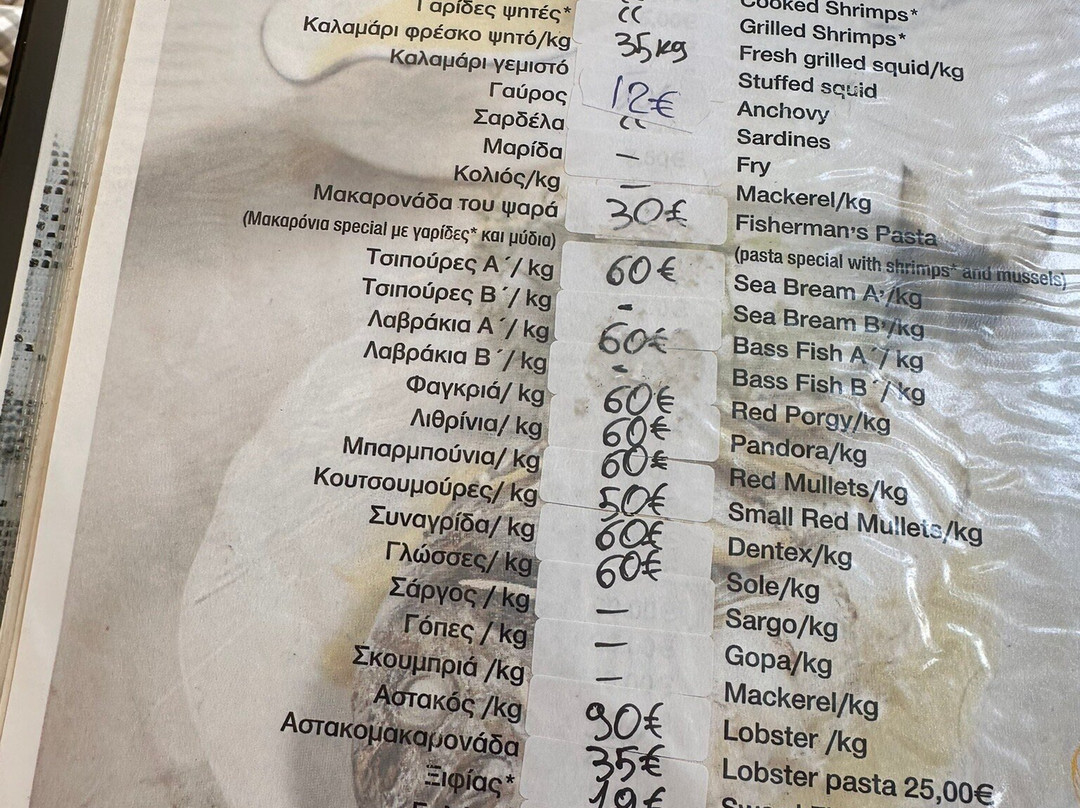 Γαρίδες ψητές* 〃 Cooked Shrimps*
Καλαμάρι φρέσκο ψητό/kg 35 kg Grilled Shrimps*
Καλαμάρι γεμιστό Fresh grilled squid/kg
Γαύρος 12€ Stuffed squid
Σαρδέλα 〃 Anchovy
Μαρίδα – Sardines
Κολιός/kg – Fry
Μακαρονάδα του ψαρά 30€ Mackerel/kg
(Μακαρόνια special με γαρίδες* και μύδια) Fisherman's Pasta
(pasta special with shrimps* and mussels)
Τσιπούρες Α΄/ kg 60€ Sea Bream A'/kg
Τσιπούρες Β΄/ kg - Sea Bream B'/kg
Λαβράκια Α΄/ kg 60€ Bass Fish A΄/ kg
Λαβράκια Β΄/ kg - Bass Fish B΄/ kg
Φαγκριά/ kg 60€ Red Porgy/kg
Λιθρίνια/ kg 60€ Pandora/kg
Μπαρμπούνια/ kg 60€ Red Mullets/kg
Κουτσουμούρες/ kg 50€ Small Red Mullets/kg
Συναγρίδα/ kg 60€ Dentex/kg
Γλώσσες/ kg 60€ Sole/kg
Σάργος / kg – Sargo/kg
Γόπες / kg – Gopa/kg
Σκουμπριά /kg – Mackerel/kg
Αστακός /kg 90€ Lobster /kg
Αστακομακαρονάδα 35€ Lobster pasta 25,00€
Ξιφίας* 19€